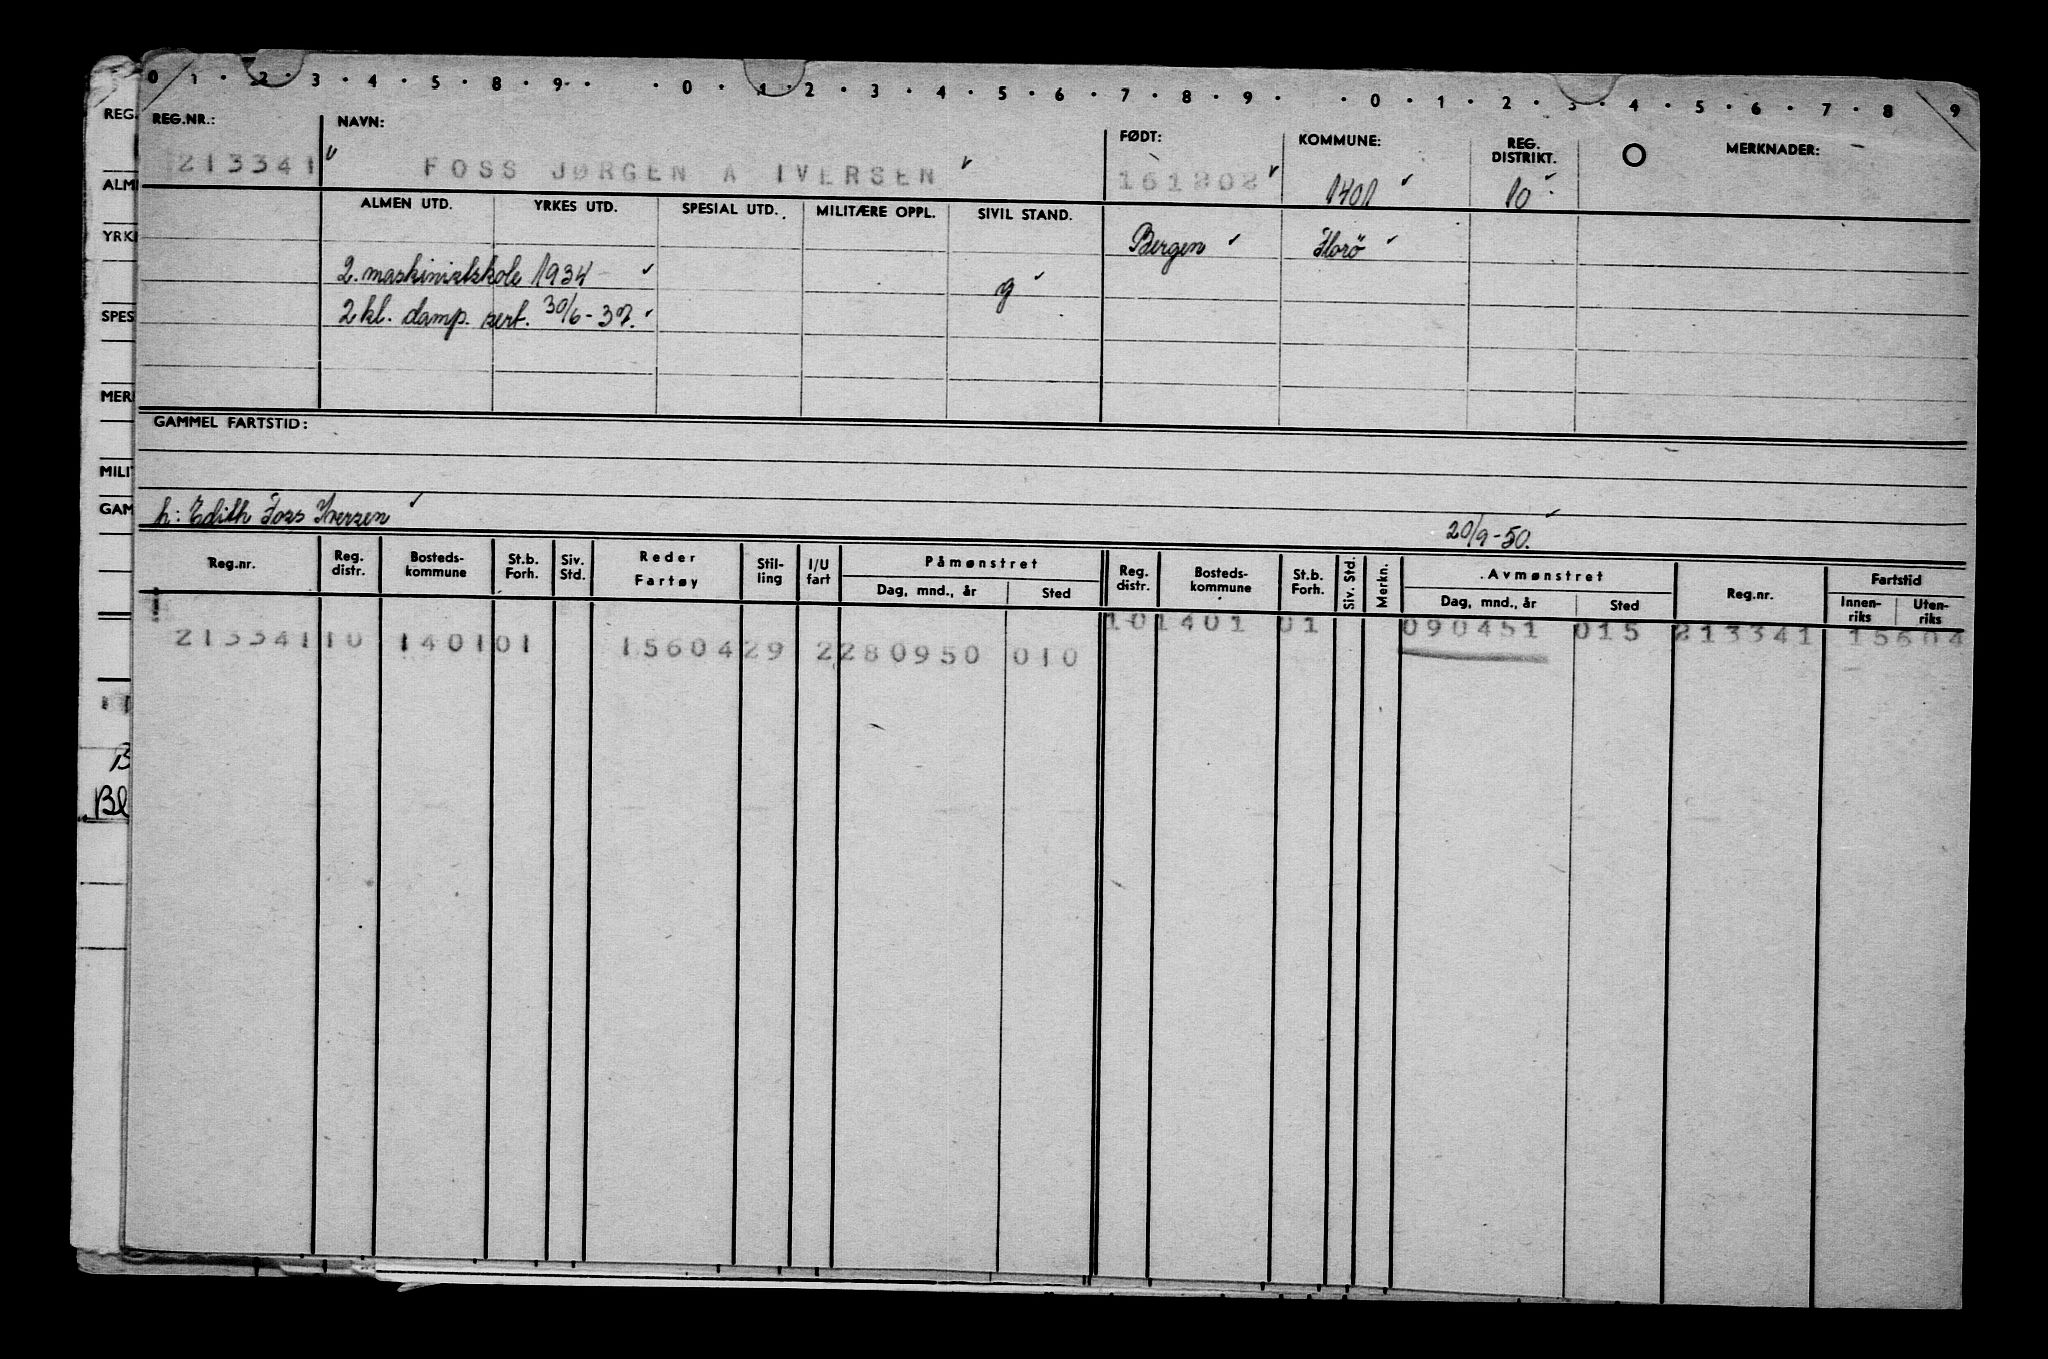 0 1 · 2 · 3 · 4 · 5 · 8 · 9 · · 0 · 1 · 2 · 3 · 4 · 5 · 6 · 7 · 8 · 9 · · 0 · 1 · 2 · 3 · 4 · 5 · 6 · 7 · 8 9
REG.NR.: NAVN: FØDT: KOMMUNE: REG. DISTRIKT. O MERKNADER:
213341 FOSS JØRGEN A IVERSEN 161202 1401 10
ALMEN UTD. YRKES UTD. SPESIAL UTD. MILITÆRE OPPL. SIVIL STAND.
Bergen Florö
2. maskinistskole 1934 g
2 kl. damp. sert. 30/6-37.
GAMMEL FARTSTID:
h: Edith Foss Iversen 20/9-50.
Reg.nr. Reg. distr. Bosteds- kommune St.b. Forh. Siv. Std. Reder Fartøy Stil- ling I/U fart Påmønstret Reg. distr. Bosteds- kommune St.b. Forh. Siv. Std. Merkn. Avmønstret Reg.nr. Fartstid
Dag, mnd., år Sted Dag, mnd., år Sted Innen- riks Uten- riks
213341 10 1401 01 15604 29 2 280950 010 10 1401 01 090451 015 213341 15604
REG.
ALM
YRK
SPES
MER
MILI
GAM
B
Bl